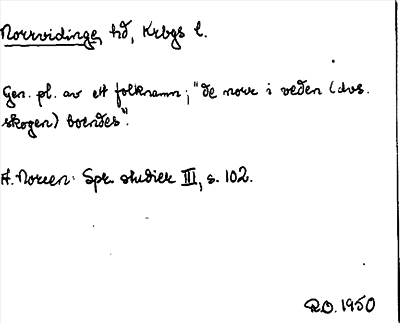 Norrvidinge, hd, Krbgs l.
Gen. pl. av ett folknamn; "de norr i veden (dvs.
skogen) boendes".
A. Noreen: Spr. studier III, s. 102.
R.O. 1950